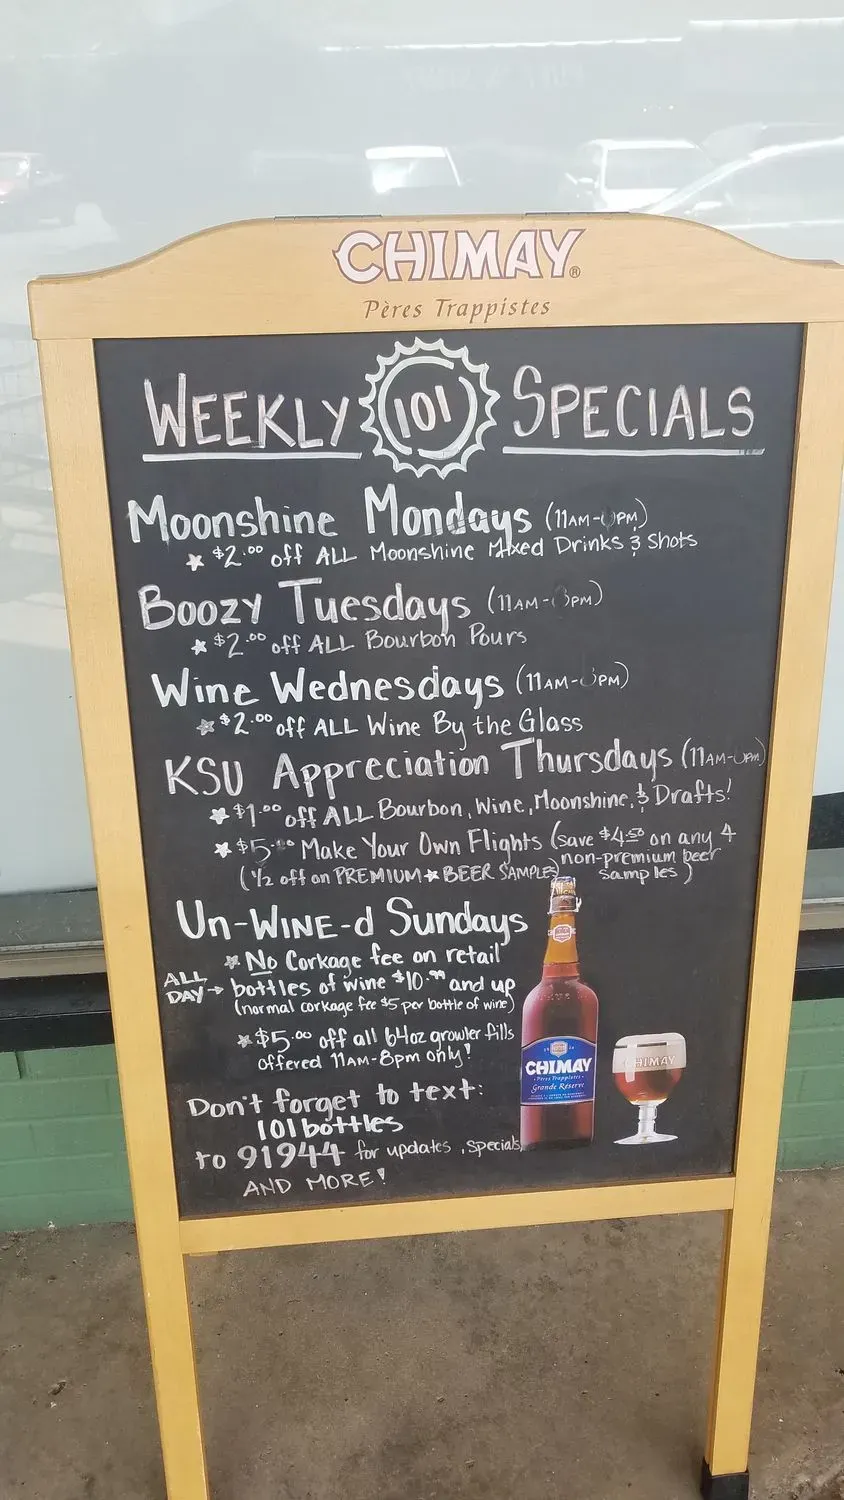 CHIMAY®
Pères Trappistes
WEEKLY 101 SPECIALS
Moonshine Mondays (11AM- PM)
$2.00 off ALL Moonshine Mixed Drinks & Shots
Boozy Tuesdays (11AM- PM)
$2.00 off ALL Bourbon Pours
Wine Wednesdays (11AM- PM)
$2.00 off ALL Wine By the Glass
KSU Appreciation Thursdays (11AM- PM)
$1.00 off ALL Bourbon, Wine, Moonshine, & Drafts!
$5.00 Make Your Own Flights (save $4.50 on any 4
non-premium beer
(1/2 off on PREMIUM BEER SAMPLES) samples)
Un-WINE-d Sundays
No Corkage fee on retail
ALL DAY → bottles of wine $10.99 and up
(normal corkage fee $5 per bottle of wine)
$5.00 off all 64oz growler fills
offered 11AM-8pm only!
Don't forget to text:
101bottles
to 91944 for updates, specials,
AND MORE!
CHIMAY
Pères Trappistes
Grande Réserve
CHIMAY